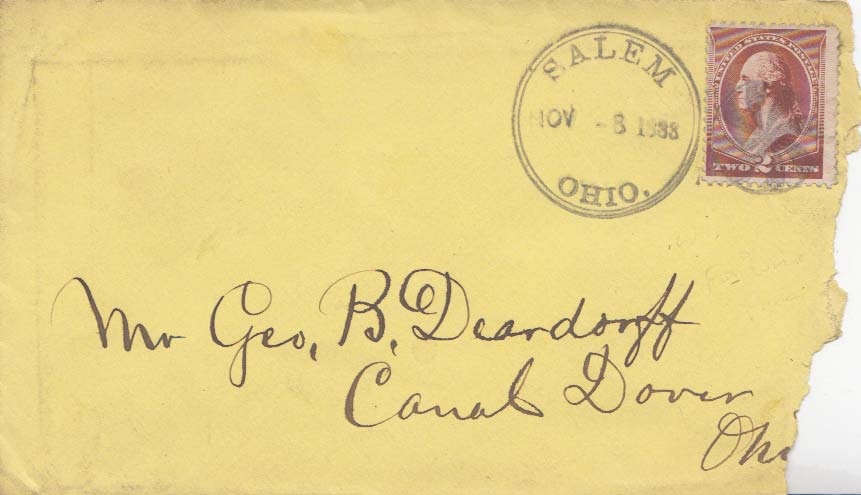 SALEM
NOV - 8 1888
OHIO.
UNITED STATES POSTAGE
TWO 2 CENTS
Mr Geo. B. Deardorff
Canal Dover
Ohi